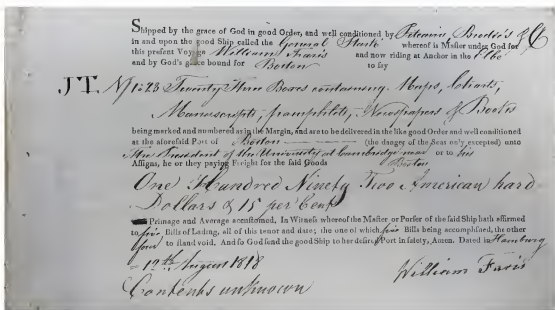 Shipped by the grace of God in good Order, and well conditioned by Peterim Brodie's & C
in and upon the good Ship called the General Stark whereof is Master under God for
this present Voyage William Faris and now riding at Anchor in the Elbe
and by God's grace bound for Boston to say
JT No 1 a 23 Twenty Three Boxes containing Maps, Charts,
Manuscripts, pamphlets, Newspapers & Books
being marked and numbered as in the Margin, and are to be delivered in the like good Order and well conditioned
at the aforesaid Port of Boston (the danger of the Seas only excepted) unto
The President of the University at Cambridge near or to his
Assigns, he or they paying Freight for the said Goods Boston
One Hundred Ninety Two American hard
Dollars & 15 per Cent
Primage and Average accustomed. In Witness whereof the Master or Purser of the said Ship hath affirmed
to five Bills of Lading, all of this tenor and date; the one of which five Bills being accomplished, the other
four to stand void. And so God send the good Ship to her desired Port in safety, Amen. Dated in Hamburg
12th August 1818
William Faris
Contents unknown